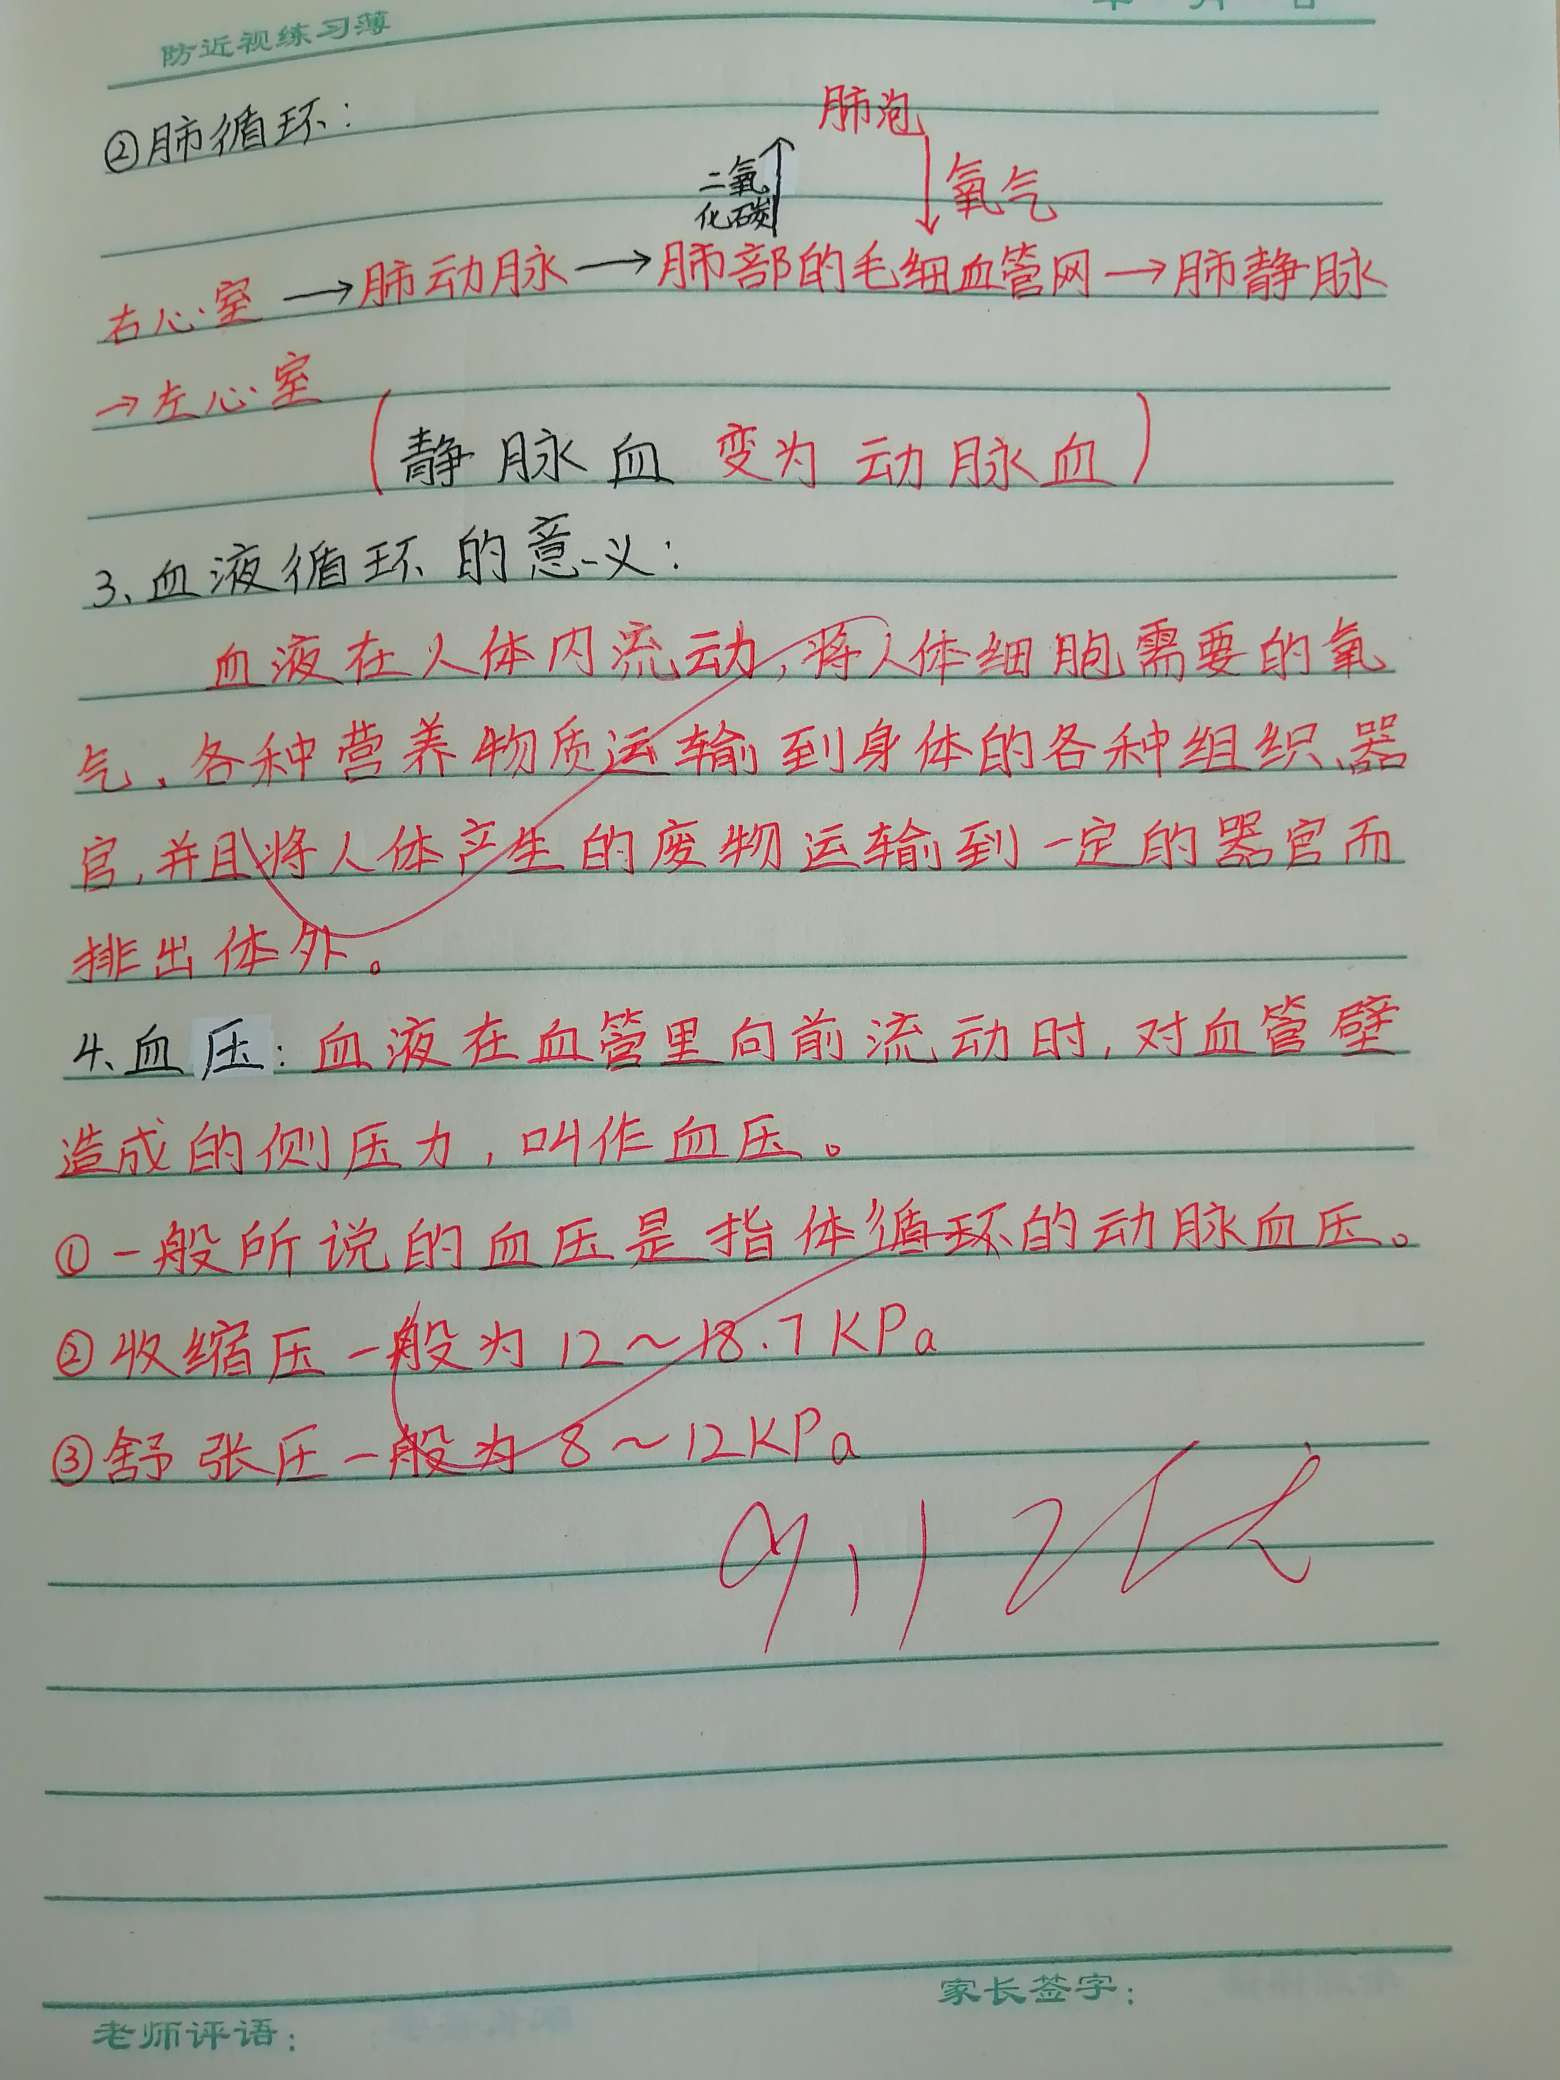 防近视练习薄
年 月 日
②肺循环：
肺泡
二氧
化碳
氧气
右心室→肺动脉→肺部的毛细血管网→肺静脉
→左心室
（静脉血变为动脉血）
3、血液循环的意义：
血液在人体内流动，将人体细胞需要的氧
气、各种营养物质运输到身体的各种组织、器
官，并且将人体产生的废物运输到一定的器官而
排出体外。
4、血压：血液在血管里向前流动时，对血管壁
造成的侧压力，叫作血压。
①一般所说的血压是指体循环的动脉血压。
②收缩压一般为12～18.7KPa
③舒张压一般为8～12KPa
家长签字：
老师评语：